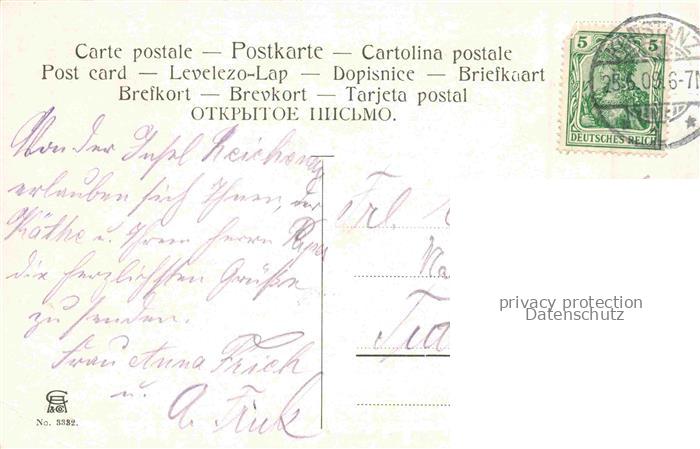 Carte postale — Postkarte — Cartolina postale
Post card — Levelezo-Lap — Dopisnice — Briefkaart
Brefkort — Brevkort — Tarjeta postal
ОТКРЫТОЕ ПИСЬМО.
5 5
DEUTSCHES REICH
KONSTANZ
25.6.09. 6-7N
Von der Insel Reichenau
erlauben sich Ihnen, der
Käthe u. Ihrem Herrn Papa
die herzlichsten Grüße
zu senden.
Frau Anna Frick
u.
A. Frick
Frl.
privacy protection
Datenschutz
No. 3332.